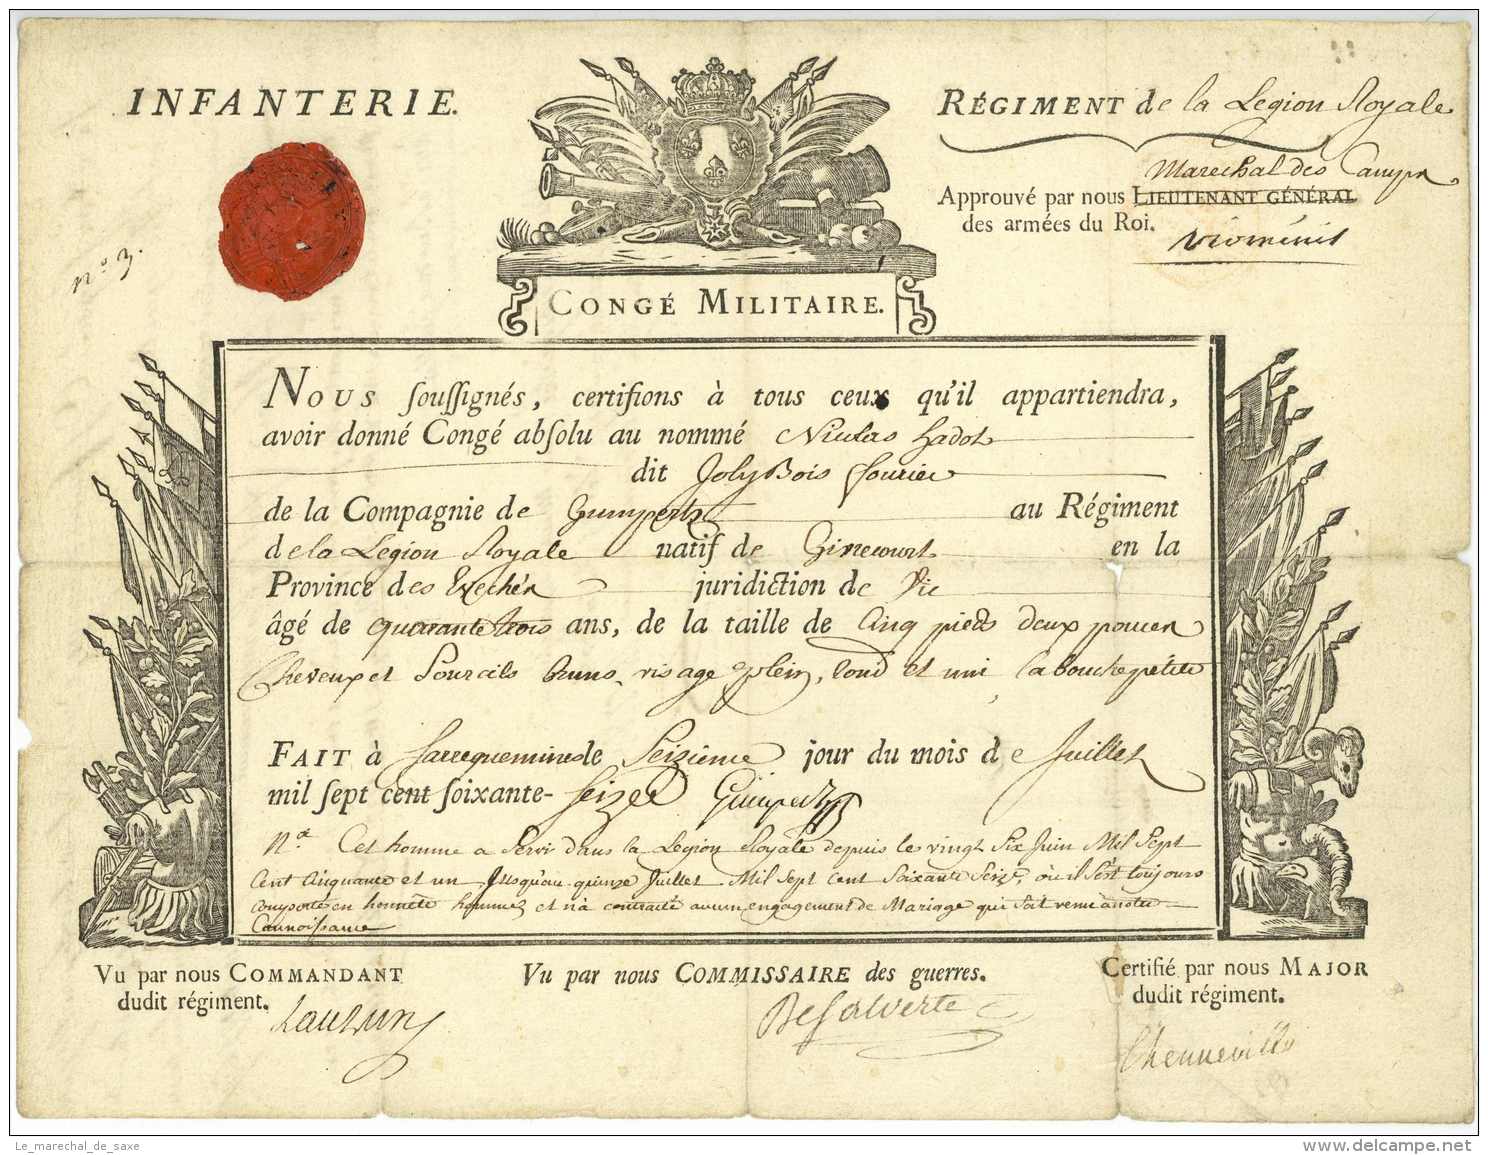 INFANTERIE.
RÉGIMENT de la Legion Royale
Marechal des Camps
Approuvé par nous LIEUTENANT GÉNÉRAL
des armées du Roi.
Viomenil
n.º 3.
CONGÉ MILITAIRE.
NOUS soussignés, certifions à tous ceux qu'il appartiendra,
avoir donné Congé absolu au nommé Nicolas hadot
dit Joly Bois fourier
de la Compagnie de Gumpertz au Régiment
de la Legion Royale natif de Ginecourt en la
Province des Evechés juridiction de Vic
âgé de quarante trois ans, de la taille de Cinq pieds deux pouces
Cheveux et Sourcils bruns, visage plein, rond et uni la bouche petite
FAIT à Sarreguemines le Seizieme jour du mois de Juillet
mil sept cent soixante-seize Gumpertz
Nª Cet homme a Servi dans la Legion Royale depuis le vingt Six Juin Mil Sept
Cent Cinquante et un Jusqu'au quinze Juillet Mil Sept Cent Soixante Seize, où il S'est toujours
comporté en honnete homme et n'a contracté aucun engagement de Mariage qui soit venu a notre
Connoissance
Vu par nous COMMANDANT
dudit régiment.
Lauzun
Vu par nous COMMISSAIRE des guerres.
De Salverte
Certifié par nous MAJOR
dudit régiment.
Chenneville
Le_marechal_de_saxe
www.delcampe.net